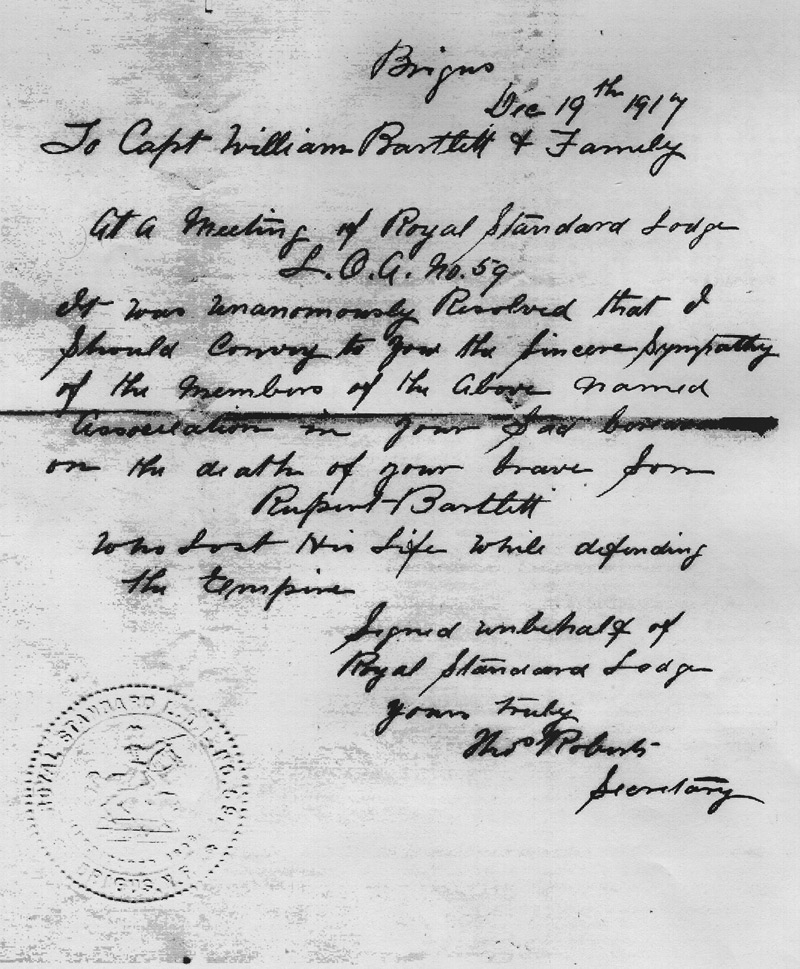 Brigus
Dec 19th 1917
To Capt William Bartlett & Family
At a Meeting of Royal Standard Lodge
L.O.A. No. 59
It was unanomously Resolved that I
Should Convey to you the Sincere Sympathy
of the Members of the Above named
Association in your Sad
on the death of your brave Son
Rupert Bartlett
Who Lost His Life While defending
the Empire
Signed unbehalf of
Royal Standard Lodge
yours truly
Thos Roberts
Secretary
ROYAL STANDARD L.O.L. NO. 59
BRIGUS, N.F.